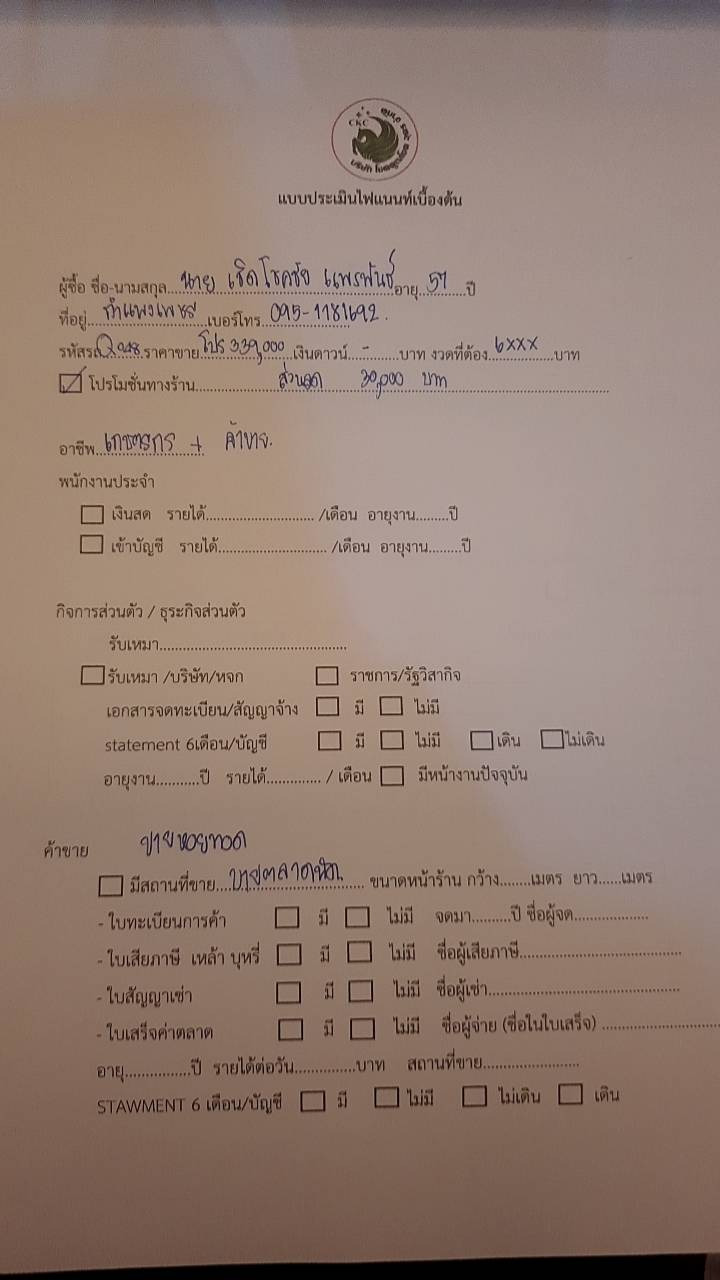 CKC
แบบประเมินไฟแนนท์เบื้องต้น
ผู้ซื้อ ชื่อ-นามสกุล...นาย เชิดโชคชัย แพรพันธ์...อายุ...57...ปี
ที่อยู่...กำแพงเพชร...เบอร์โทร...095-1181692.
รหัสรถ...ราคาขาย...โปร 339,000...เงินดาวน์...-...บาท งวดที่ต้อง...6xxx...บาท
โปรโมชั่นทางร้าน...ส่วนลด 30,000 บาท
อาชีพ...เกษตรกร + ค้าขาย.
พนักงานประจำ
เงินสด รายได้.............................. /เดือน อายุงาน.........ปี
เข้าบัญชี รายได้.............................. /เดือน อายุงาน.........ปี
กิจการส่วนตัว / ธุระกิจส่วนตัว
รับเหมา..................................................
รับเหมา /บริษัท/หจก ราชการ/รัฐวิสากิจ
เอกสารจดทะเบียน/สัญญาจ้าง มี ไม่มี
statement 6เดือน/บัญชี มี ไม่มี เดิน ไม่เดิน
อายุงาน...........ปี รายได้.............. / เดือน มีหน้างานปัจจุบัน
ค้าขาย ขายหอยทอด
มีสถานที่ขาย...ขายตลาดนัด...ขนาดหน้าร้าน กว้าง........เมตร ยาว......เมตร
- ใบทะเบียนการค้า มี ไม่มี จดมา..........ปี ชื่อผู้จด...................
- ใบเสียภาษี เหล้า บุหรี่ มี ไม่มี ชื่อผู้เสียภาษี.........................................
- ใบสัญญาเช่า มี ไม่มี ชื่อผู้เช่า................................................
- ใบเสร็จค่าตลาด มี ไม่มี ชื่อผู้จ่าย (ชื่อในใบเสร็จ) ..............................
อายุ.................ปี รายได้ต่อวัน...............บาท สถานที่ขาย........................
STAWMENT 6 เดือน/บัญชี มี ไม่มี ไม่เดิน เดิน